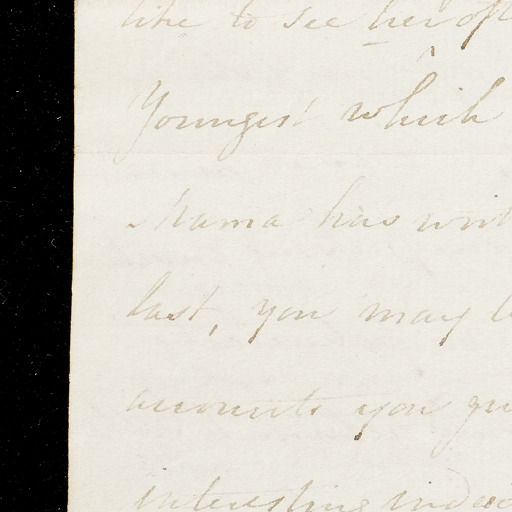 like to see her
Younges' which
Mama has writ
last, you may
accounts you
interesting